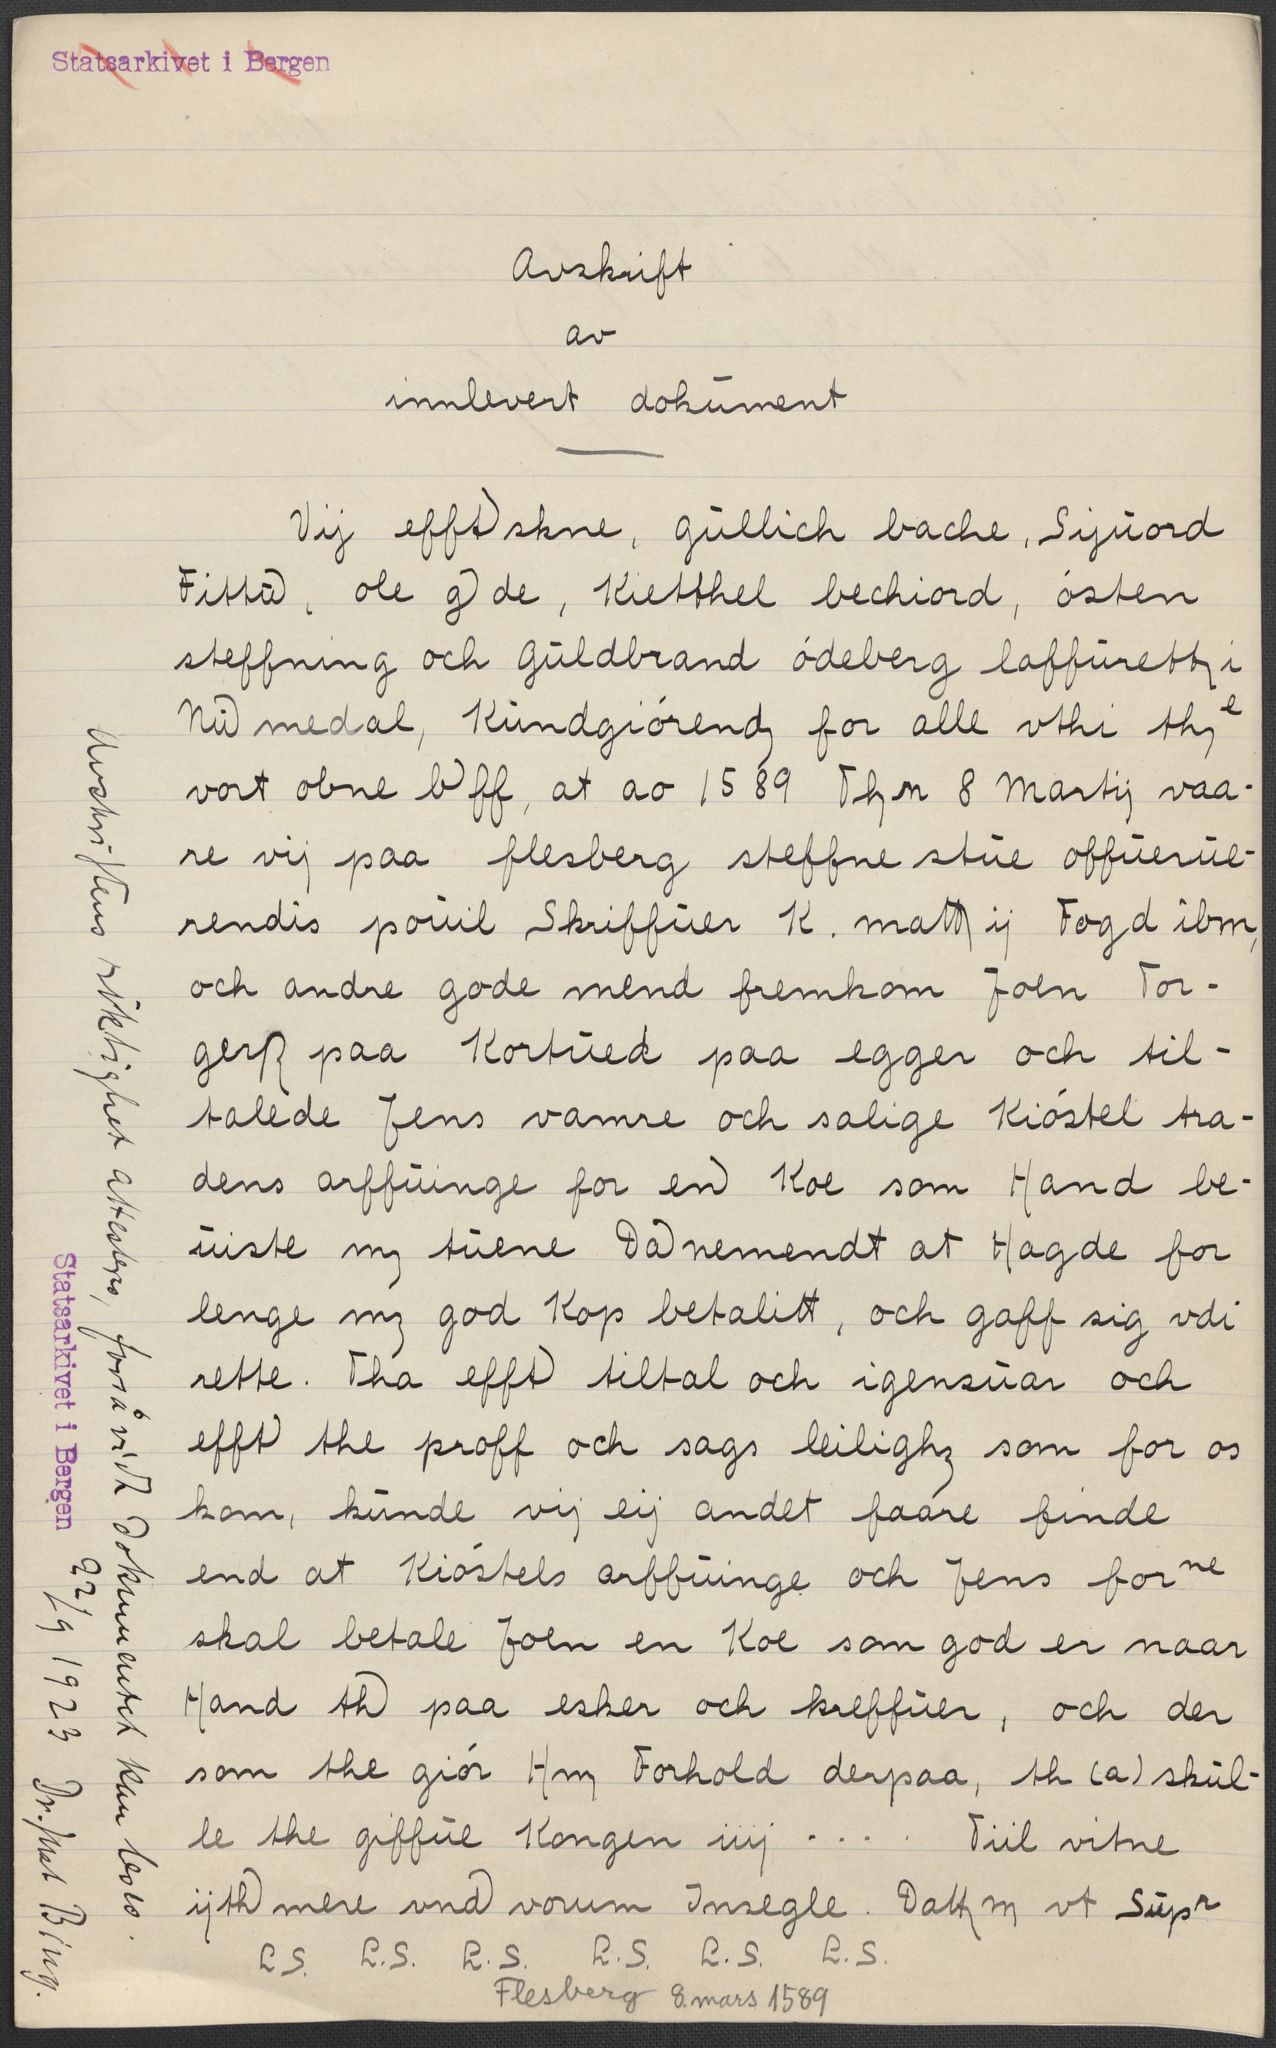 Statsarkivet i Bergen
Avskrift
av
innlevert dokument
Vij efft skne, gullich bache, Sijuord
Fittu, ole g de, Kietthel bechiord, östen
steffning och Guldbrand ódeberg laffurettz i
Nu medal, Kundgiórendz for alle vthi thz e
vort obne b ff, at ao 1589 Thz n 8 Martij vaa-
re vij paa flesberg steffne stue offuerue-
rendis pouil Skriffuer K. matt ij Fogd ibm,
och andre gode mend fremkom Joen Tor-
gerß paa Kortued paa egger och til-
talede Jens vamre och salige Kióstel tra-
dens arffuinge for en Koe som Hand be-
uiste mz tuene Da nemendt at Hagde for
lenge mz god Kop betalitt, och gaff sig vdi
rette. Tha efft tiltal och igensuar och
efft the proff och sags leilighz som for os
kom, kunde vij eij andet faare finde
end at Kióstels arffuinge och Jens for ne
skal betale Joen en Koe som god er naar
Hand th paa esker och kreffuer, och der
som the giór Hmz Forhold derpaa, th (a) skul-
le the giffue Kongen iiij .... Tiil vitne
ijth mere vnd vorum Insegle. Datt m vt Supr
L.S. L.S. L.S. L.S. L.S. L.S.
Flesberg 8. mars 1589
Avskriftens riktighet attesteres, forsåvidt dokumentet kan leses.
Statsarkivet i Bergen 22/9 1923 Dr. Just Bing.